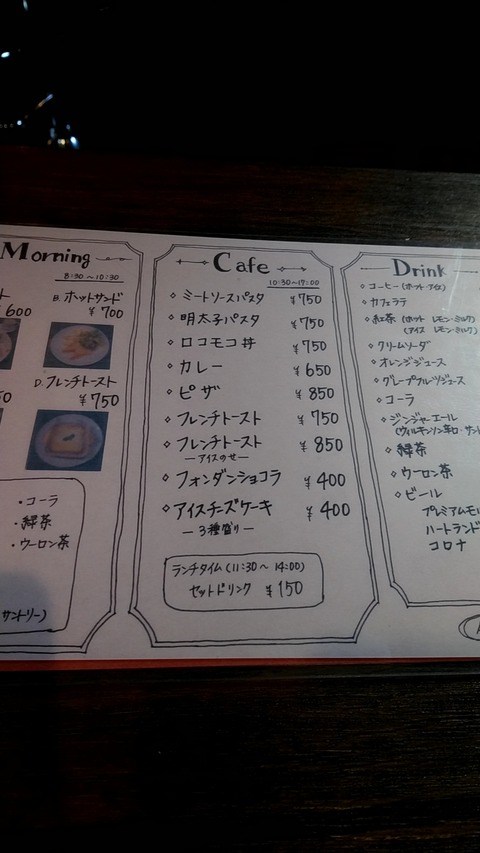 Morning
8:30～10:30
ト
B. ホットサンド
600
¥700
D. フレンチトースト
50
¥750
・コーラ
・緑茶
・ウーロン茶
サントリー)
Cafe
10:30～17:00
◇ ミートソースパスタ ¥750
◇ 明太子パスタ ¥750
◇ ロコモコ丼 ¥750
◇ カレー ¥650
◇ ピザ ¥850
◇ フレンチトースト ¥750
◇ フレンチトースト ¥850
―アイスのせ―
◇ フォンダンショコラ ¥400
◇ アイスチーズケーキ ¥400
― 3種盛り ―
ランチタイム (11:30～14:00)
セットドリンク ¥150
Drink
◇ コーヒー (ホット・アイス)
◇ カフェラテ
◇ 紅茶 (ホット レモン・ミルク)
(アイス レモン・ミルク)
◇ クリームソーダ
◇ オレンジジュース
◇ グレープフルーツジュース
◇ コーラ
◇ ジンジャエール
(ウィルキンソン辛口・サント
◇ 緑茶
◇ ウーロン茶
◇ ビール
プレミアムモル
ハートランド
コロナ